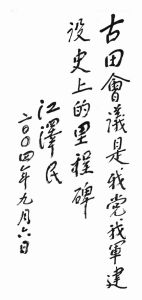 古田會議是我党我軍建
設史上的里程碑
江澤民
二〇〇四年九月六日